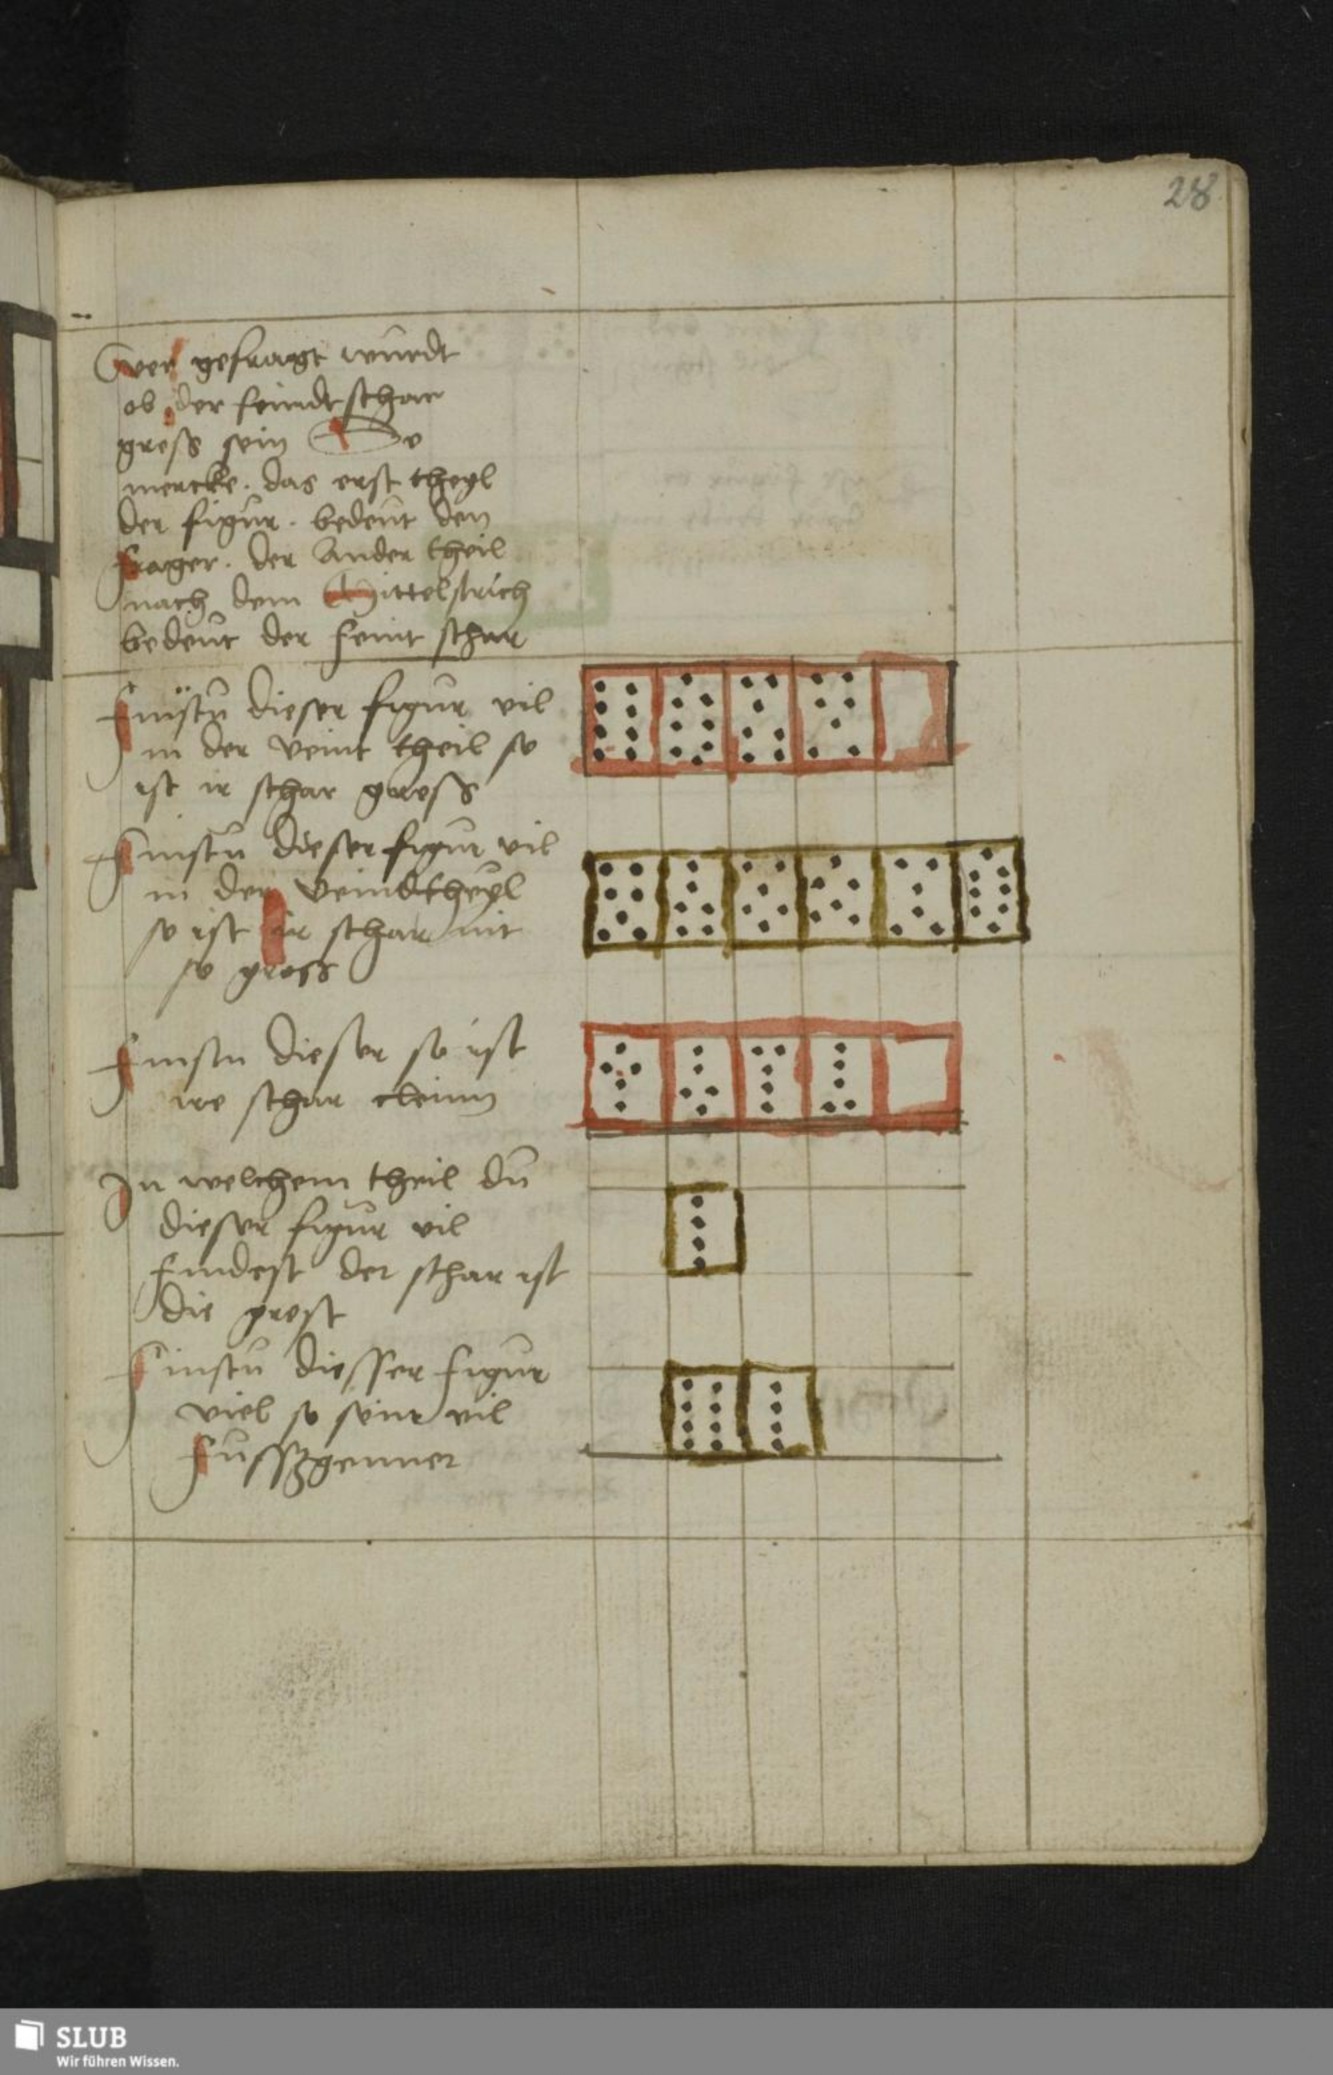 28
Wer gefragt wurdt
ob der feindt schar
gross sein So
mercke. das erst theyl
der figur. bedeut den
frager. der Ander theil
nach dem Mittelstrich
bedeut der feint schar
Finstu dieser figur vil
in der veint theil so
ist ir schar gross
Finstu dieser figur vil
in der veindtheyl
so ist ir schar nit
so gross
Finstu dieser so ist
ire schar cleinn
In welchem theil du
dieser figur vil
findest der schar ist
die grost
Finstu diesser figur
viel so seint vil
fussgenner
SLUB
Wir führen Wissen.